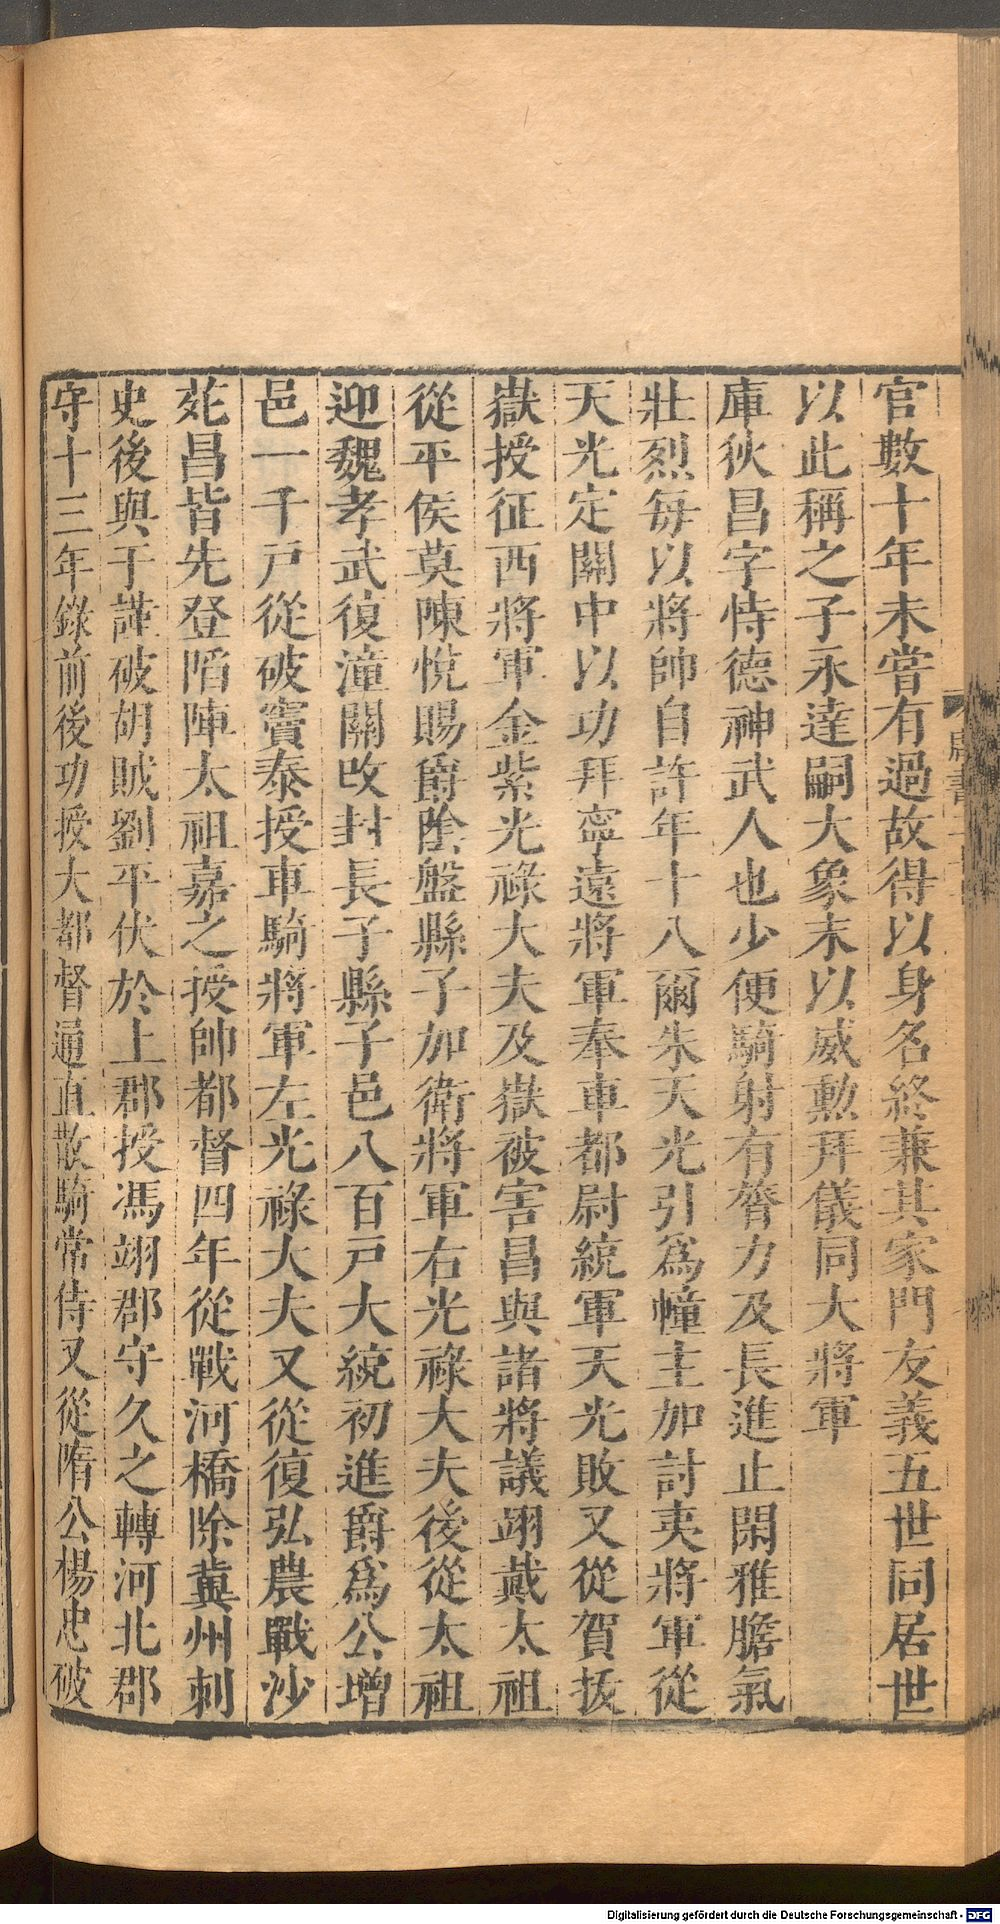 官數十年未嘗有過故得以身名終兼其家門友義五世同居世
以此稱之子永達嗣大象末以威勲拜儀同大將軍
庫狄昌字恃德神武人也少便騎射有膂力及長進止閑雅膽氣
壯烈每以將帥自許年十八爾朱天光引爲幢主加討夷將軍從
天光定關中以功拜寧遠將軍奉車都尉統軍天光敗又從賀拔
嶽授征西將軍金紫光祿大夫及嶽被害昌與諸將議翊戴太祖
從平侯莫陳悅賜爵陰盤縣子加衛將軍右光祿大夫後從太祖
迎魏孝武復潼關改封長子縣子邑八百戸大統初進爵爲公增
邑一千戸從破竇泰授車騎將軍左光祿大夫又從復弘農戰沙
苑昌皆先登陷陣太祖嘉之授帥都督四年從戰河橋除冀州刺
史後與于謹破胡賊劉平伏於上郡授馮翊郡守久之轉河北郡
守十三年錄前後功授大都督通直散騎常侍又從隋公楊忠破
Digitalisierung gefördert durch die Deutsche Forschungsgemeinschaft - DFG